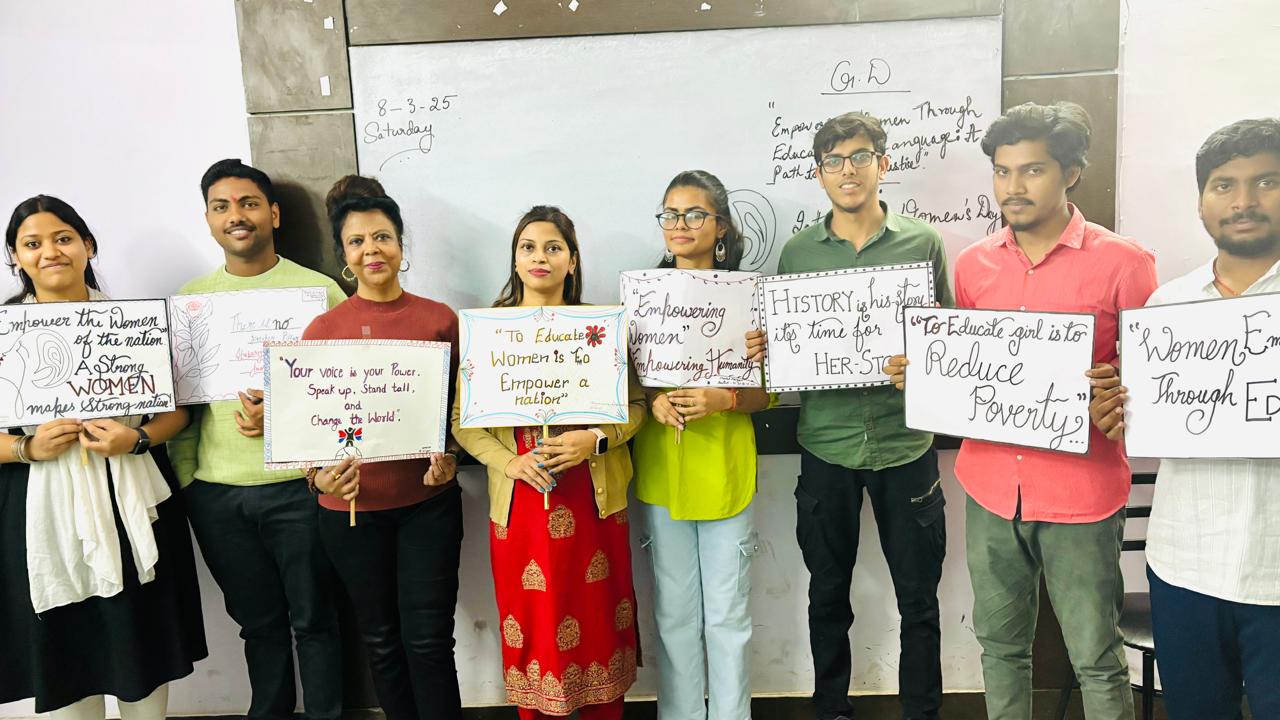 8-3-25
Saturday
G.D
"Empower Women Through
Language: A
Path to
Women's Day
Empower the Women
of the nation
A Strong
WOMEN
makes Strong nation!
There is no
"Your voice is your Power.
Speak up, Stand tall,
and
Change the World".
"To Educate
Women is to
Empower a
nation"
"Empowering
Women"
Empowering Humanity
HISTORY is his-story
its time for
HER-Sto
"To Educate girl is to
Reduce
Poverty"
"Women Em
Through E